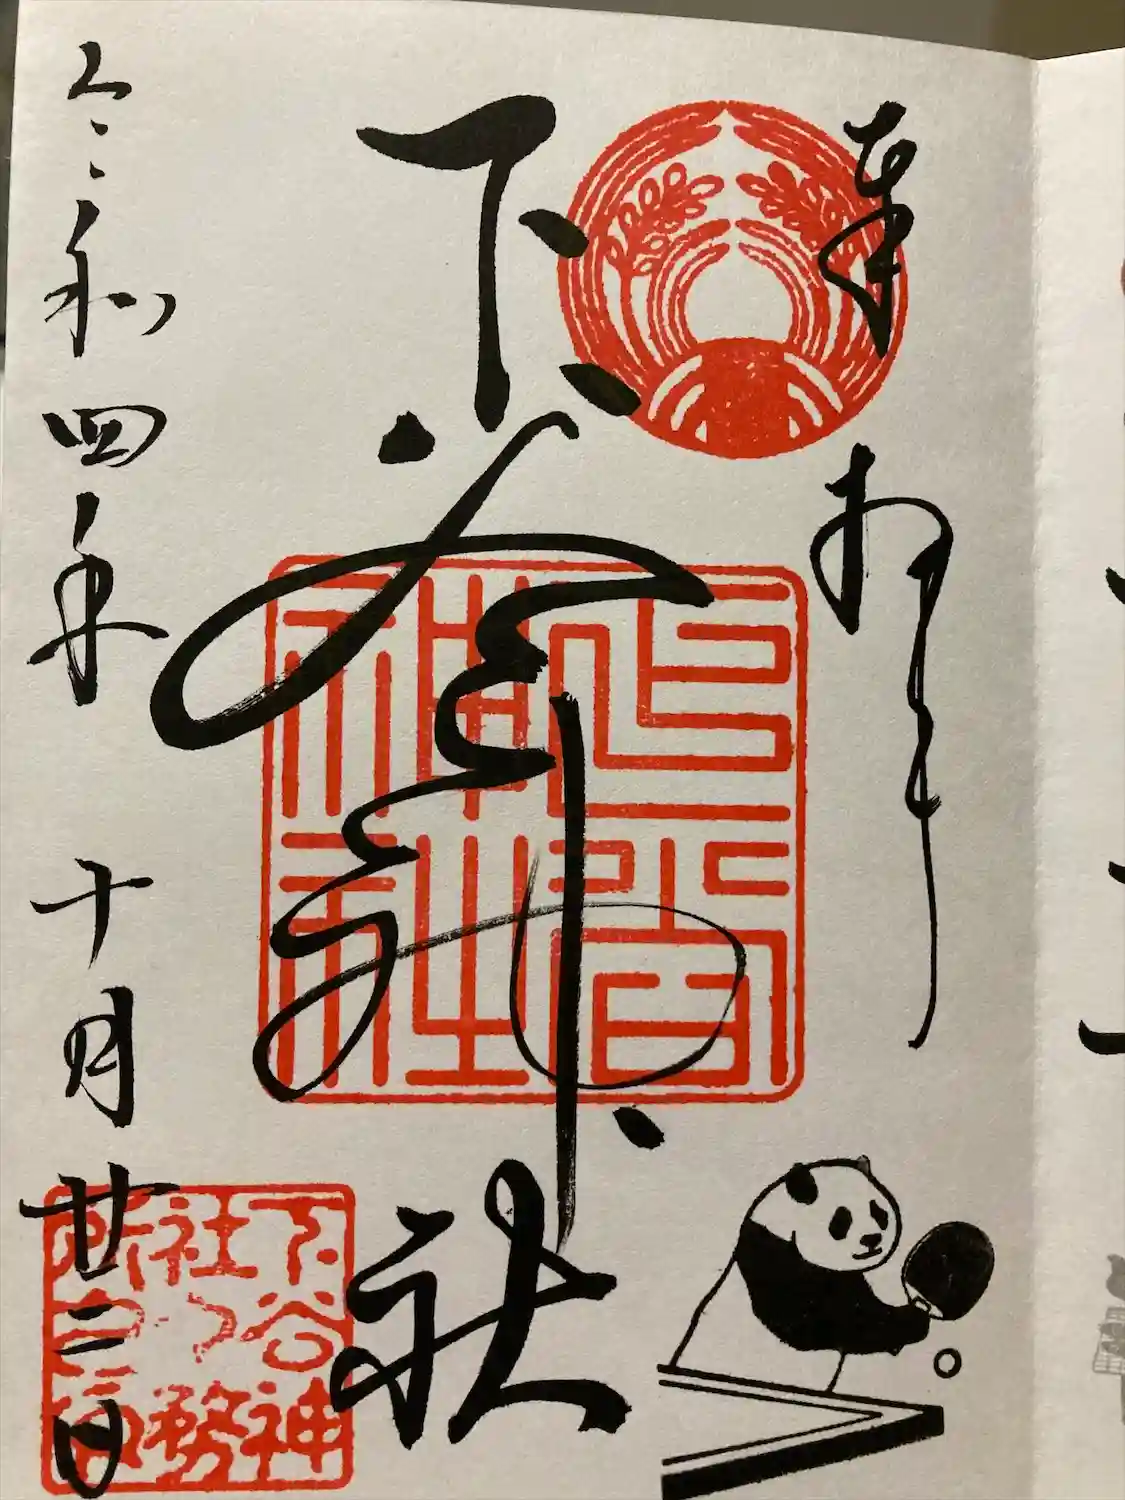 奉拝
下谷神社
下谷
神社
令和四年十月廿二日
下谷神
社々務
所之印